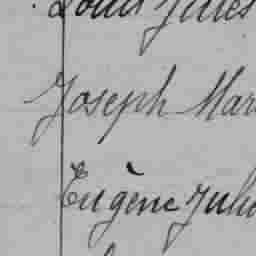 Louis Jules
Joseph Mar
Eugène Juli